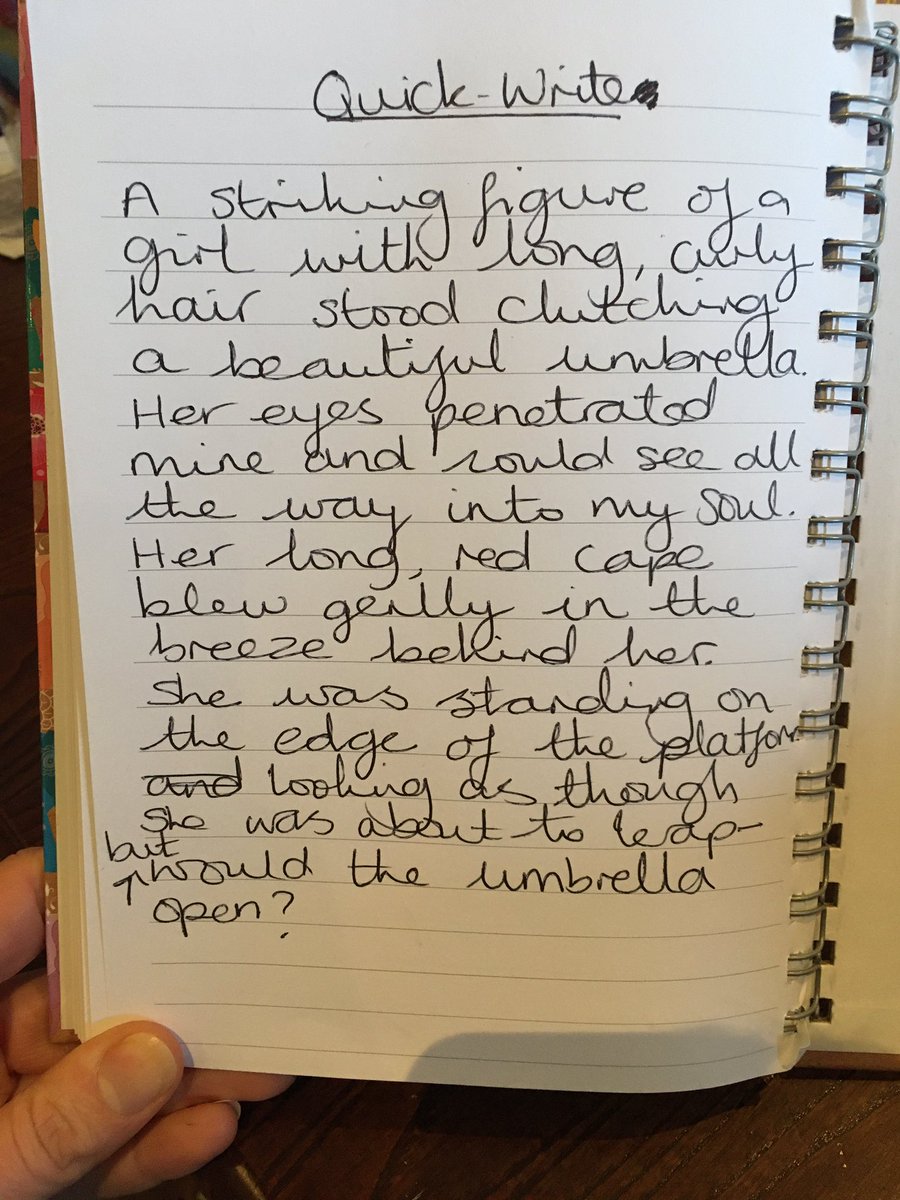 Quick-Write
A striking figure of a
girl with long, curly
hair stood clutching
a beautiful umbrella.
Her eyes penetrated
mine and could see all
the way into my soul.
Her long, red cape
blew gently in the
breeze behind her.
She was standing on
the edge of the platform
and looking as though
she was about to leap-
but would the umbrella
open?